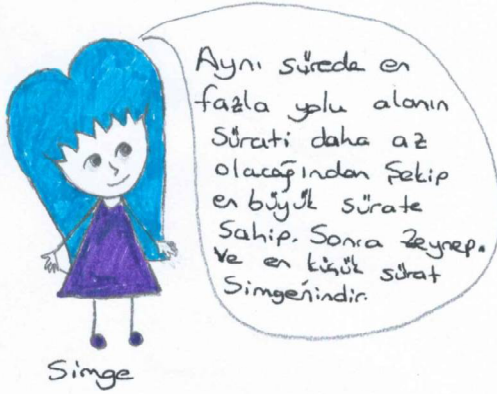 Aynı sürede en
fazla yolu alanın
Sürati daha az
olacağından Şekip
en büyük sürate
sahip. Sonra Zeynep.
Ve en küçük sürat
Simge'nindir.
Simge